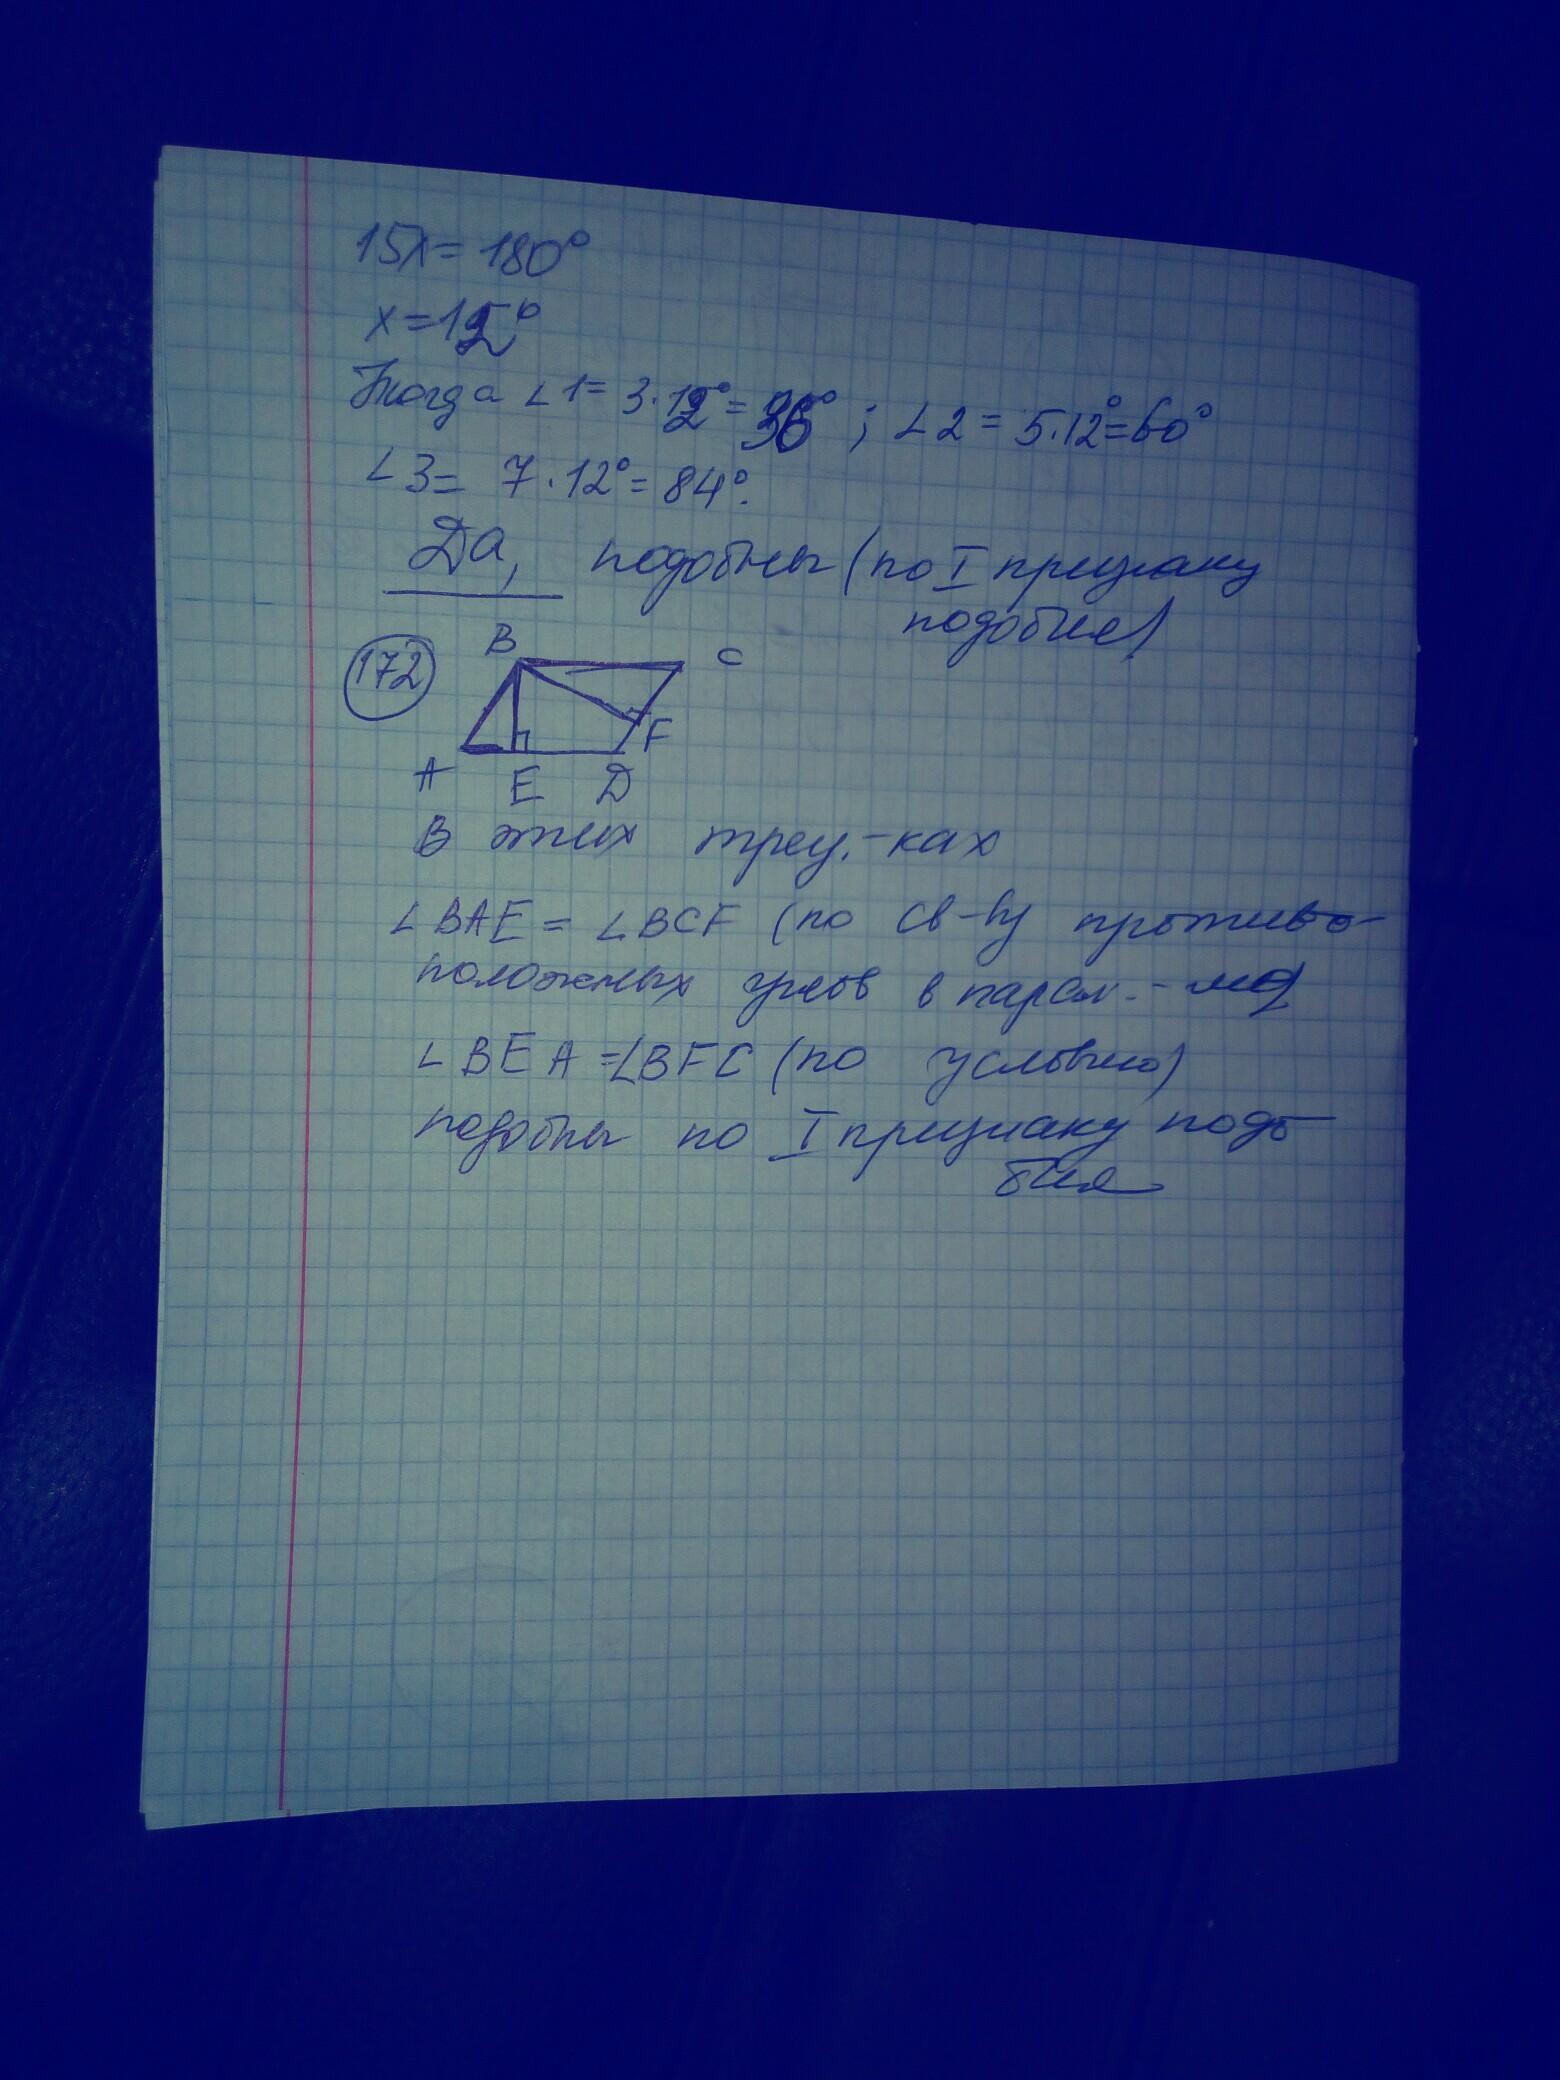 15x = 180°
x = 12°
Тогда ∠1 = 3·12° = 36° ; ∠2 = 5·12° = 60°
∠3 = 7·12° = 84°.
Да, подобны (по I признаку
подобия)
172
B C
F
A E D
В этих треу.-ках
∠BAE = ∠BCF (по св-ву противо-
положных углов в парал.-ма
∠BEA = ∠BFC (по условию)
подобны по I признаку подо-
бия